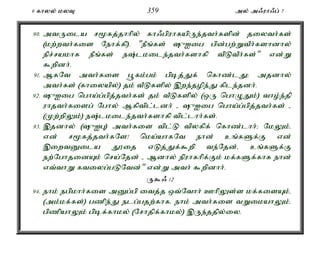 8 காலல் மலவு 359 அல் அஃராஃப் 7
90. அவருடைய சமூகத்தாரில் காஃபிராகயிருந்தவர்களின் தலைவர்கள்
(மற்றவர்களை நோக்கி) "நீங்கள் ஷுஐபை பின்பற்றுவீர்களானால்
நிச்சயமாக நீங்கள் நஷ்டமடைந்தவர்களாகி விடுவீர்கள்" என்று
கூறினர்.
91. ஆகவே அவர்களை பூகம்பம் பிடித்துக் கொண்டது; அதனால்
அவர்கள் (காலையில்) தம் வீடுகளில் இறந்தழிந்து கிடந்தனர்.
92. ஷுஐபை பொய்ப்பித்தவர்கள் தம் வீடுகளில் (ஒரு பொழுதும்) வாழ்ந்தி
ராதவர்களைப் போல் ஆகிவிட்டனர் - ஷுஐபை பொய்ப்பித்தவர்கள் -
(முற்றிலும்) நஷ்டமடைந்தவர்களாகி விட்டார்கள்.
93. இதனால் (ஷுஐபு) அவர்களை விட்டு விலகிக் கொண்டார்; மேலும்,
என் சமூகத்தவர்களே! மெய்யாகவே நான் உங்களுக்கு என்
இறைவனுடைய தூதை எடுத்துக்கூறி வந்தேன். உங்களுக்கு
நற்போதனையும் செய்தேன் - ஆனால் நிராகரிக்கும் மக்களுக்காக நான்
எவ்வாறு கவலைப்படுவேன்" என்று அவர் கூறினார்.
ருகூஃ 12
94. நாம் நபிமார்களை அனுப்பி வைத்த ஒவ்வோர் ஊரிலுள்ள மக்களையும்,
(அம்மக்கள்) பணிந்து நடப்பதற்காக நாம் அவர்களை வறுமையாலும்,
பிணியாலும் பிடிக்காமல் (சோதிக்காமல்) இருந்ததில்லை.